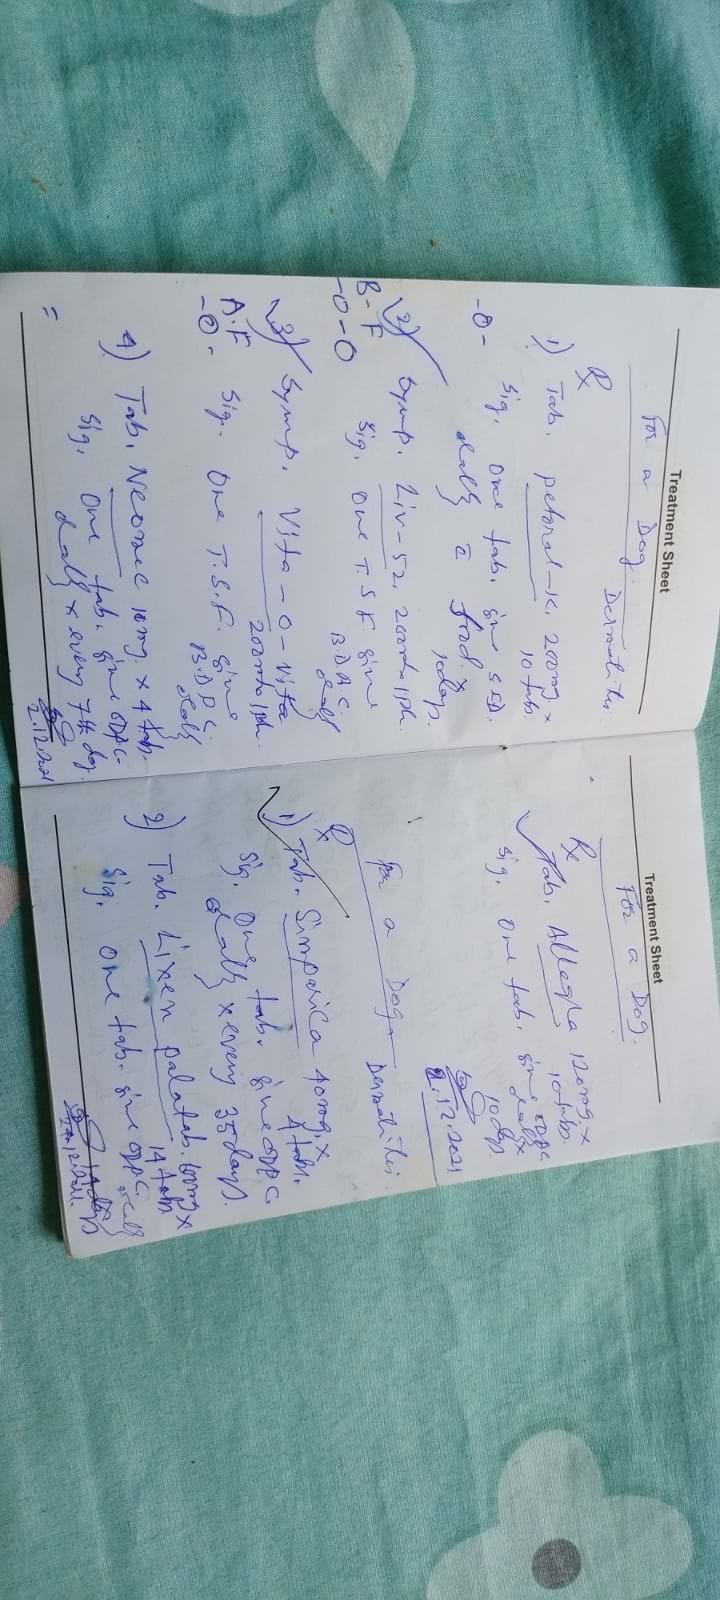 Treatment Sheet
For a Dog.
Dermatitis.
Rx
1) Tab. petoral-K. 200mg x
10 tabs.
-0- Sig. One tab. give S.D.
daily c food x
10 days.
2) Syrup. Liv-52. 200ml 1ph.
B-F Sig. One T.S.F. give
-0-0 B.D.A.C.
daily
3) Syrup. Vita-O-Vita
200ml 1ph.
A.F Sig. One T.S.F. give
-0- B.D.P.C.
daily
4) Tab. Neomec 10mg. x 4 tab.
Sig. One tab. give OD PC
daily x every 7th day.
=
2.12.2021
Treatment Sheet
For a Dog.
Rx
Tab. Allegra 120mg x
10 tabs.
Sig. One tab. give OD PC
daily x
10 days
2.12.2021
For a Dog
Dermatitis.
Rx
1) Tab. Simparica 40mg. x
4 tabs.
Sig. One tab. give OD PC
daily x every 35 days.
2) Tab. Lixen palatab. 600mg x
14 tabs
Sig. One tab. give OD PC
daily
14 days